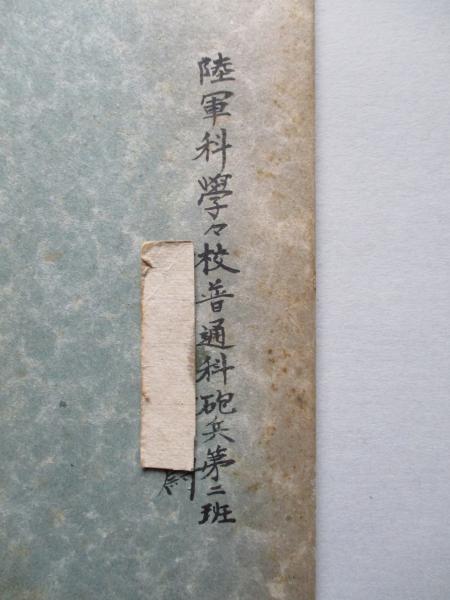 陸軍科學々校普通科砲兵第二班